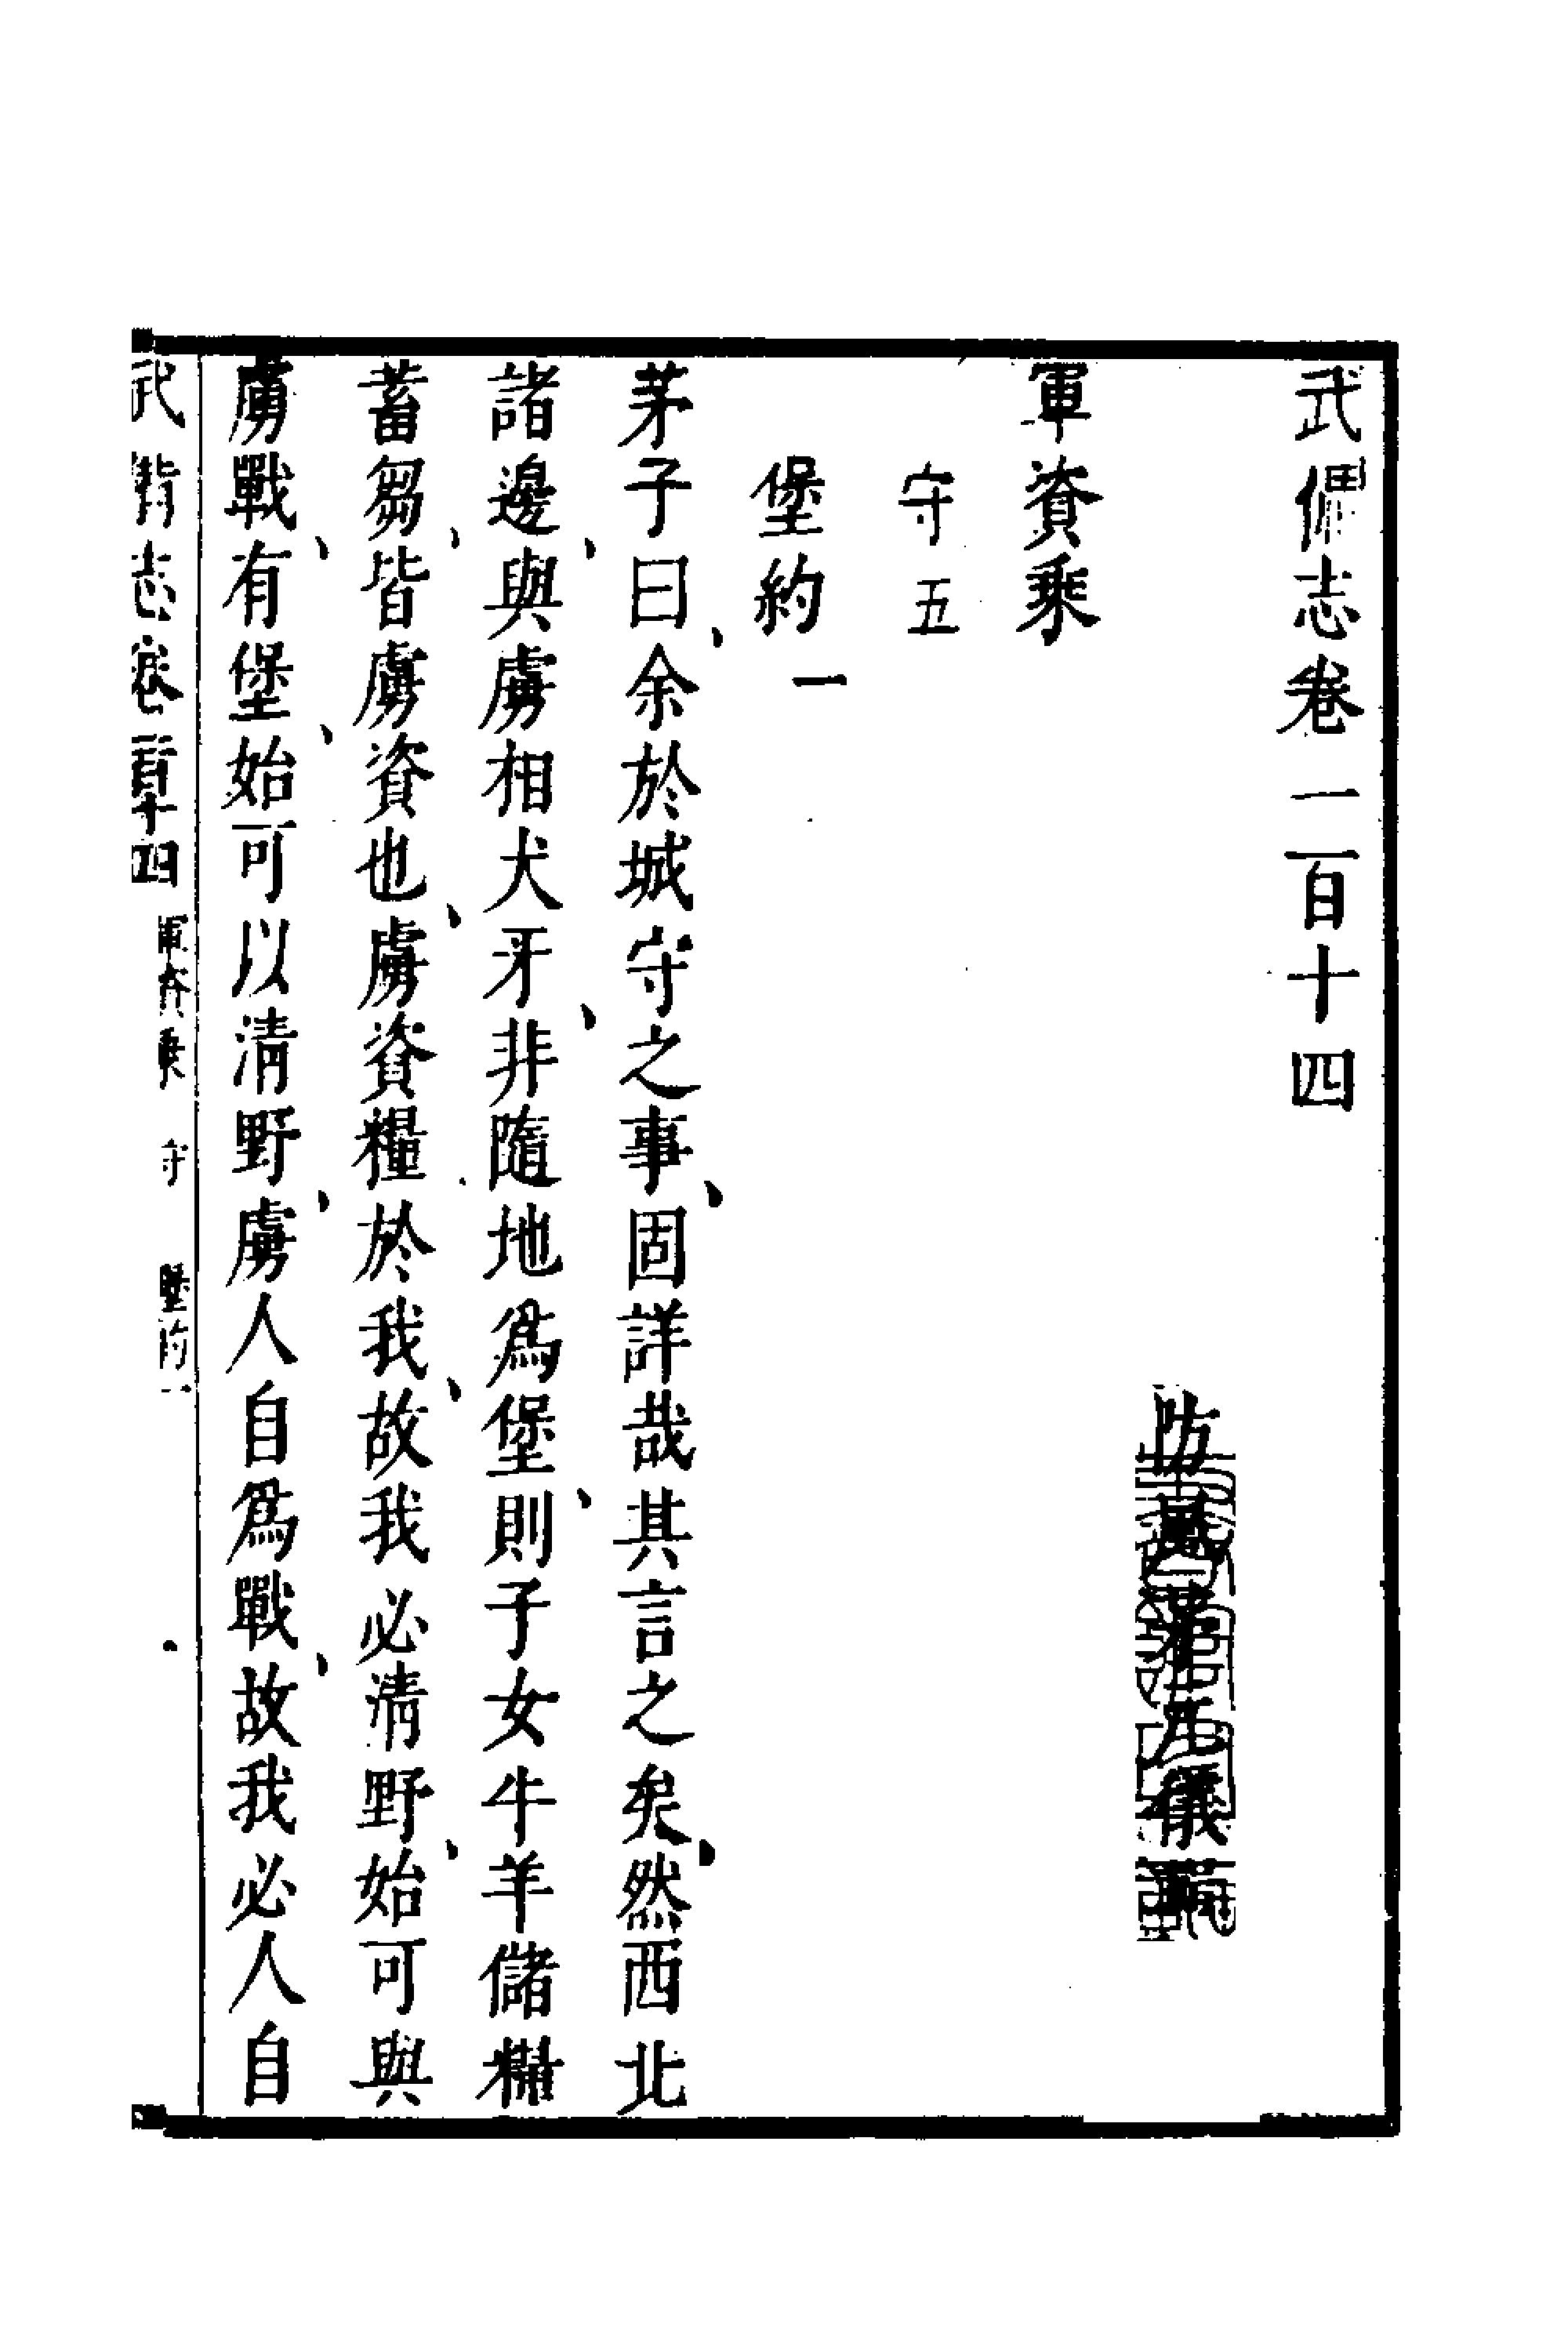 武備志卷一百十四
防風茅元儀輯
軍資乘
守五
堡約一
茅子曰余於城守之事固詳哉其言之矣然西北
諸邊與虜相犬牙非隨地爲堡則子女牛羊儲糒
蓄芻皆虜資也虜資糧於我故我必清野始可與
虜戰有堡始可以清野虜人自爲戰故我必人自
武備志卷一百十四 軍資乘 守 堡約一